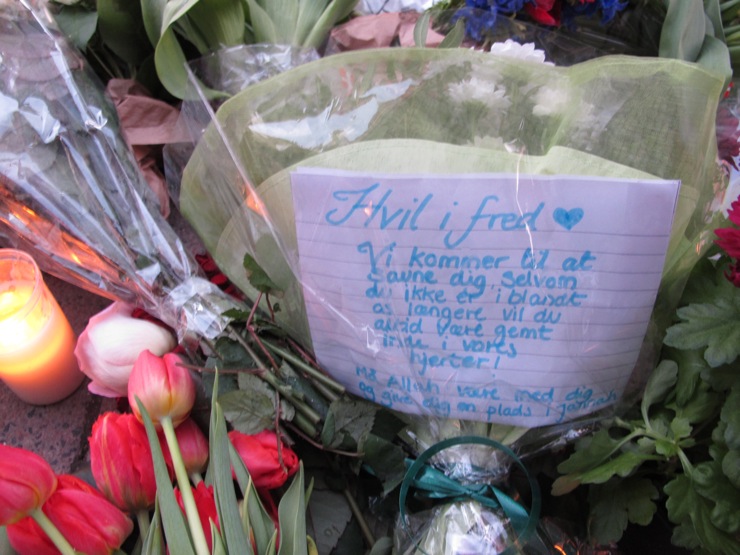 Hvil i fred
Vi kommer til at
savne dig, selvom
du ikke er i blandt
os længere vil du
altid være gemt
inde i vores
hjerter!
Må Allah være med dig
og give dig en plads i jannah